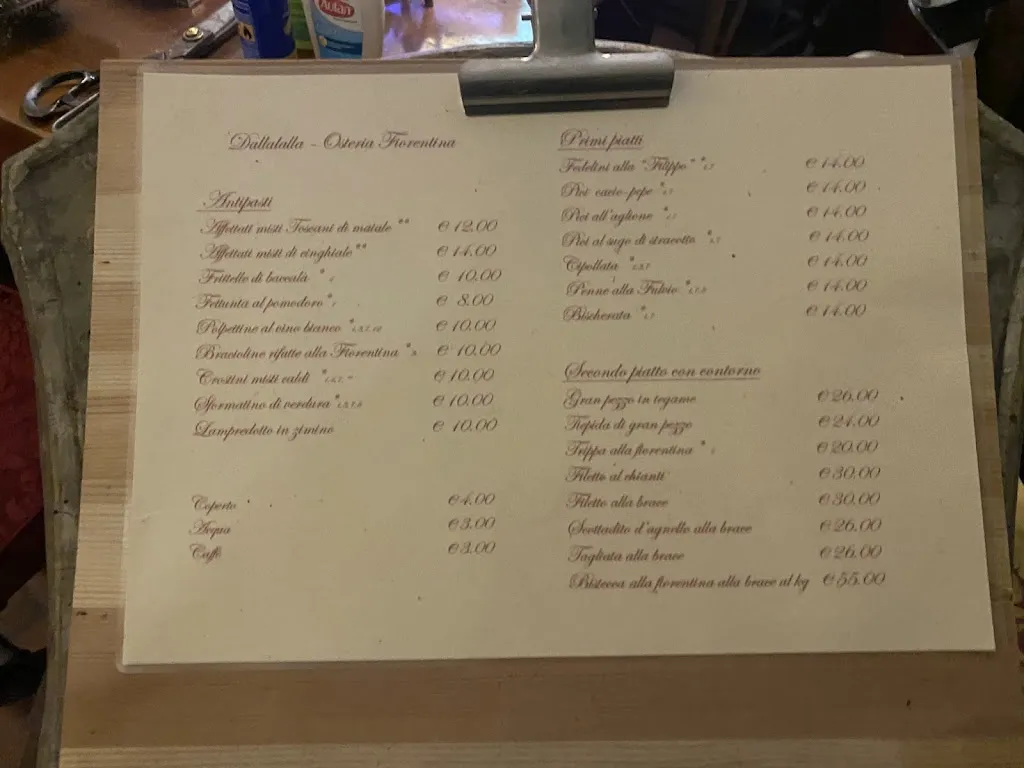 Autan
Dallalalla - Osteria Fiorentina
Antipasti
Affettati misti Toscani di maiale ** € 12.00
Affettati misti di cinghiale ** € 14.00
Frittelle di baccalà * € 10.00
Fettunta al pomodoro * € 8.00
Polpettine al vino bianco * € 10.00
Bracioline rifatte alla Fiorentina * € 10.00
Crostini misti caldi * € 10.00
Sformatino di verdura * € 10.00
Lampredotto in zimino € 10.00
Coperto € 4.00
Acqua € 3.00
Caffè € 3.00
Primi piatti
Fedelini alla "Filippo" * € 14.00
Pici cacio-pepe * € 14.00
Pici all'aglione * € 14.00
Pici al sugo di stracotto * € 14.00
Cipollata * € 14.00
Penne alla Fulvio * € 14.00
Bischerata * € 14.00
Secondo piatto con contorno
Gran pezzo in tegame € 26.00
Tiepida di gran pezzo € 24.00
Trippa alla fiorentina * € 20.00
Filetto al chianti € 30.00
Filetto alla brace € 30.00
Scottadito d'agnello alla brace € 26.00
Tagliata alla brace € 26.00
Bistecca alla fiorentina alla brace al kg € 55.00